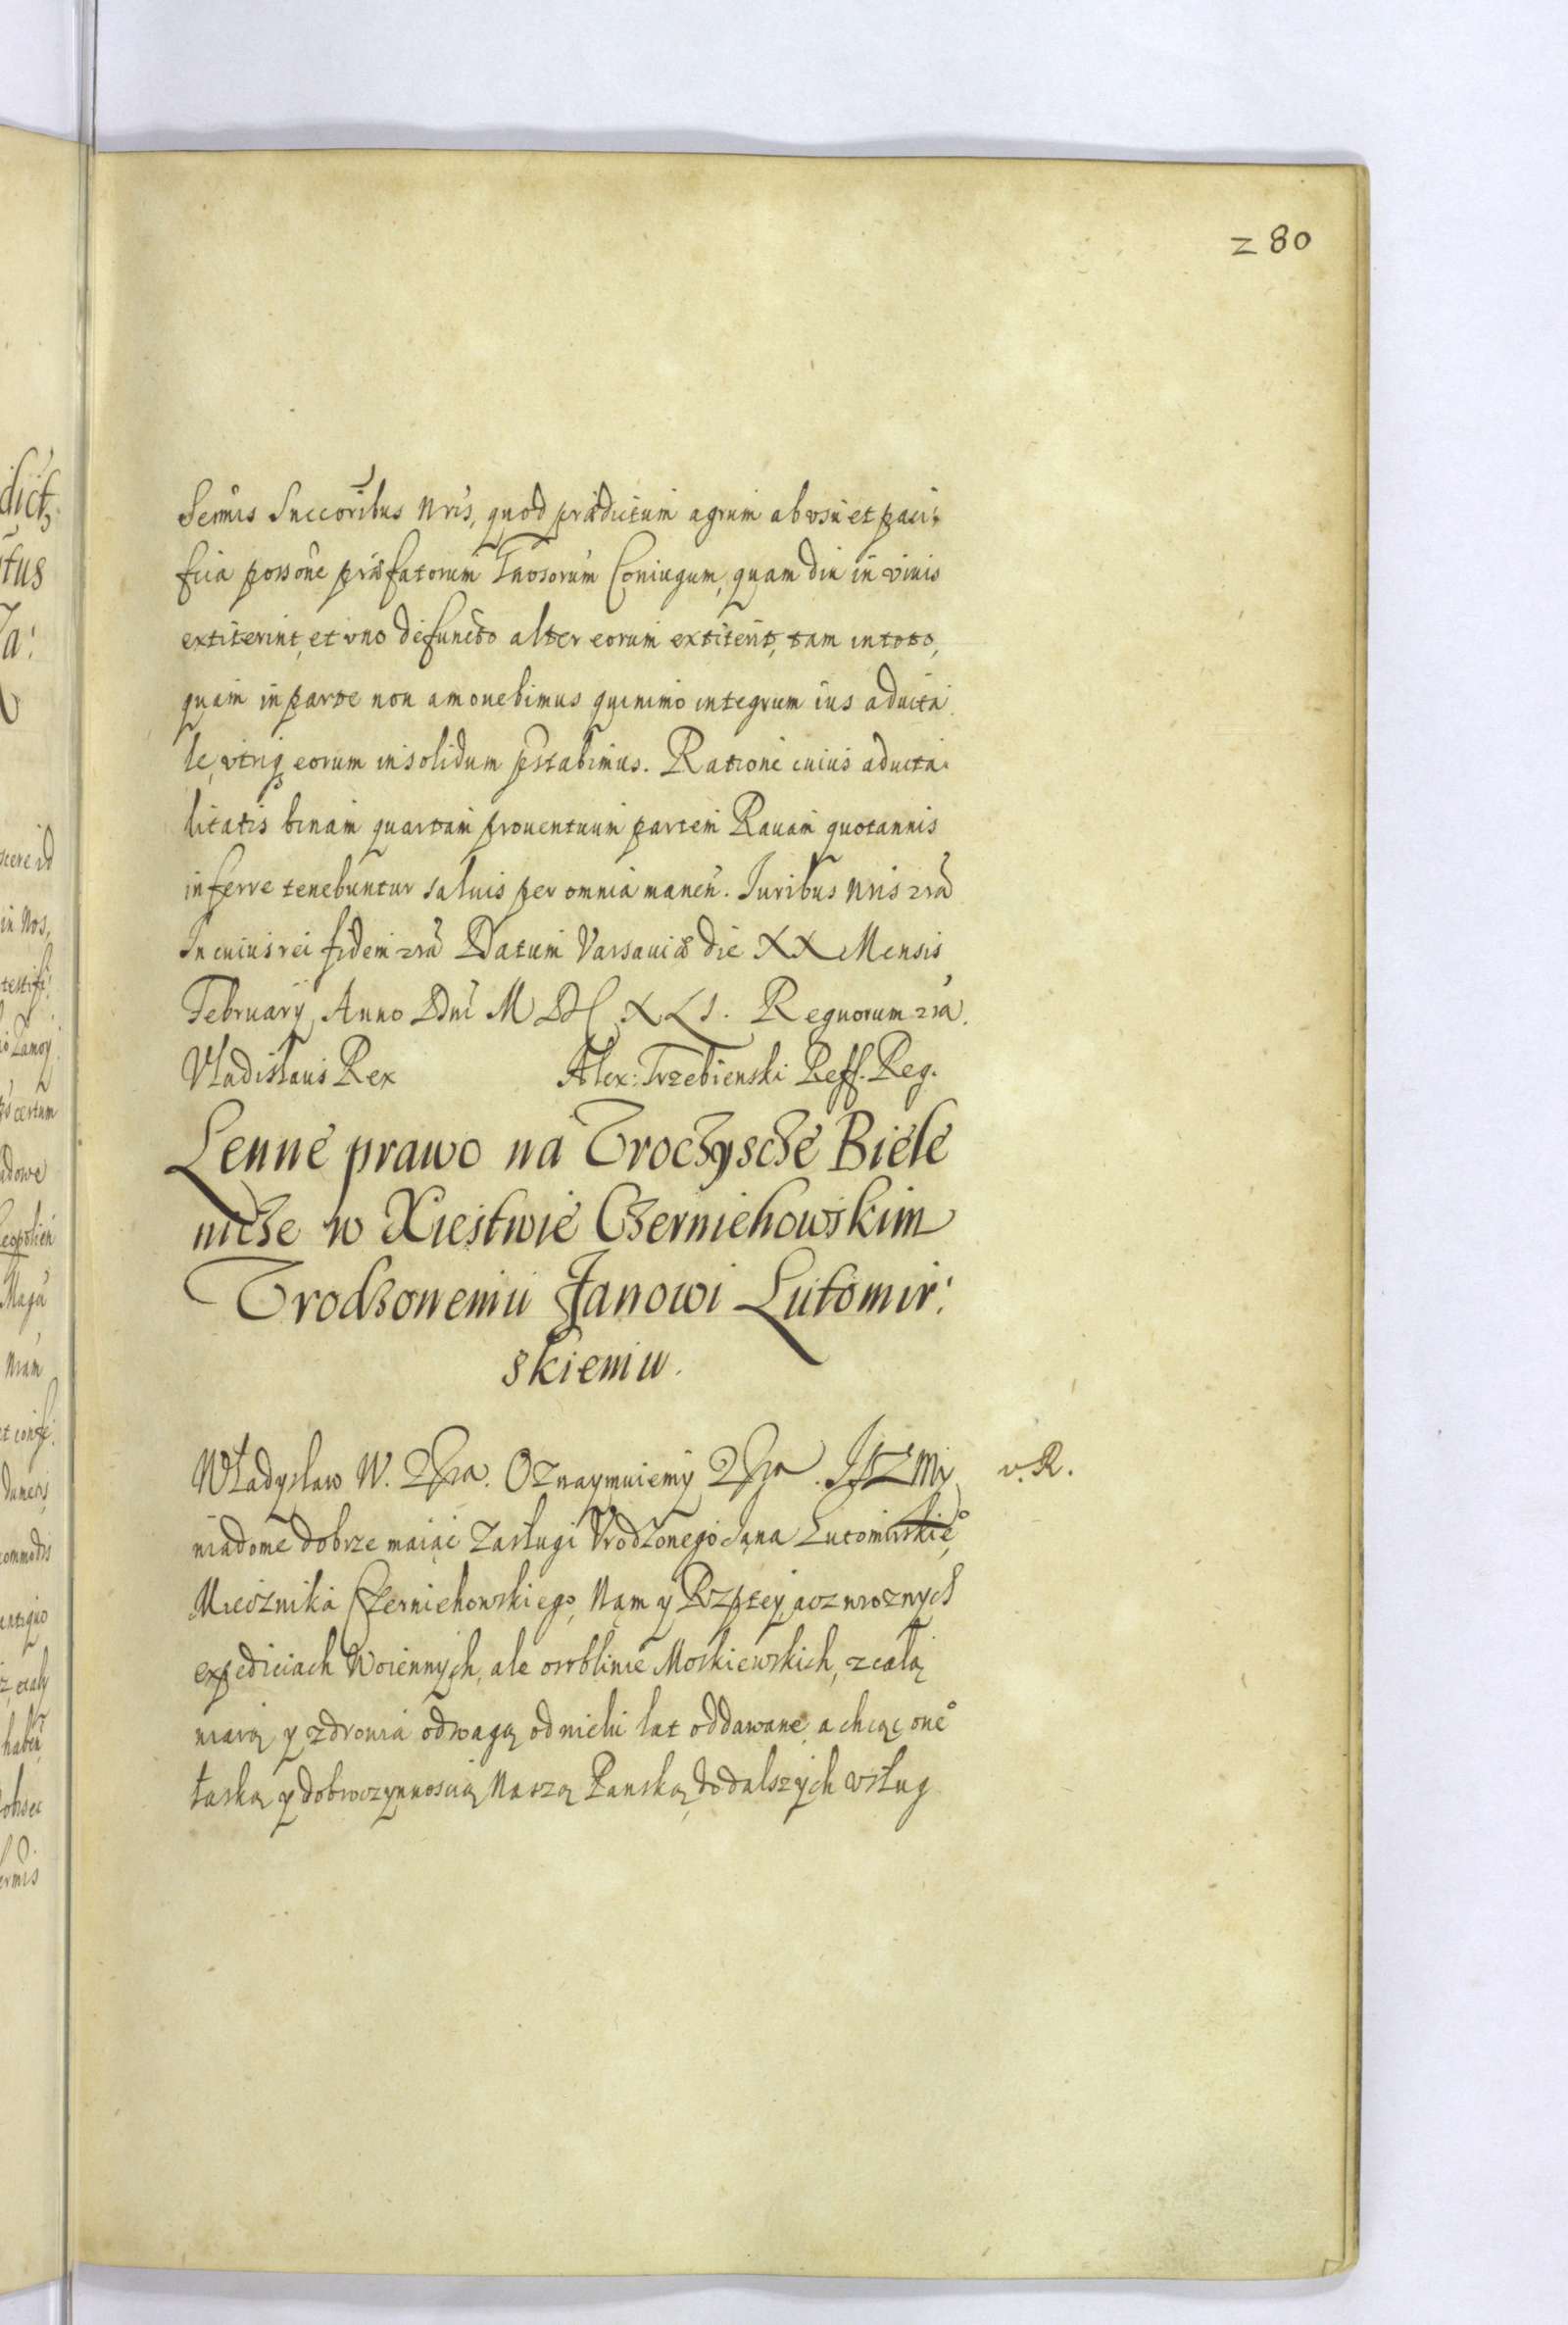 280
Sermis Succoribus Nris, quod prædictum agrum ab vsu et paci:
fica possone præfatorum Gnosorum Coniugum, quam diu in viuis
extiterint, et vno defuncto alter eorum extiterit, tam in toto,
quam in parte non amouebimus quinimo integrum ius aduita
le, vtriq eorum in solidum pstabimus. Ratione cuius aduita:
litatis binam quartam prouentuum partem Rauam quotannis
inferre tenebuntur saluis per omnia manen. Iuribus Nris zra
In cuius rei fidem zra Datum Varsauiæ die XX Mensis
February Anno Dni MDCXLI. Regnorum zra.
Vladislaus Rex Alex: Trzebienski Reff. Reg.
Lenne prawo na Troczysche Biele
nicze w Xiestwie Czerniehowskim
Vrodzonemu Janowi Lutomir:
skiemu.
Władysław W. zra. Oznaymuiemy zra. Isz My
v. R.
wiadome dobrze maiąc Zasługi Vrodzonego Jana Lutomirskie°
Miecznika Czerniehowskiego, Nam y Rzptey, acz w roznych
expediciach Woiennych, ale osoblinie Moskiewskich, z całą
wiarą y zdrowia odwagą od wielu lat oddawane, a chcąc one°
łaską y dobroczynnoscią Naszą Panską do dalszych vsług